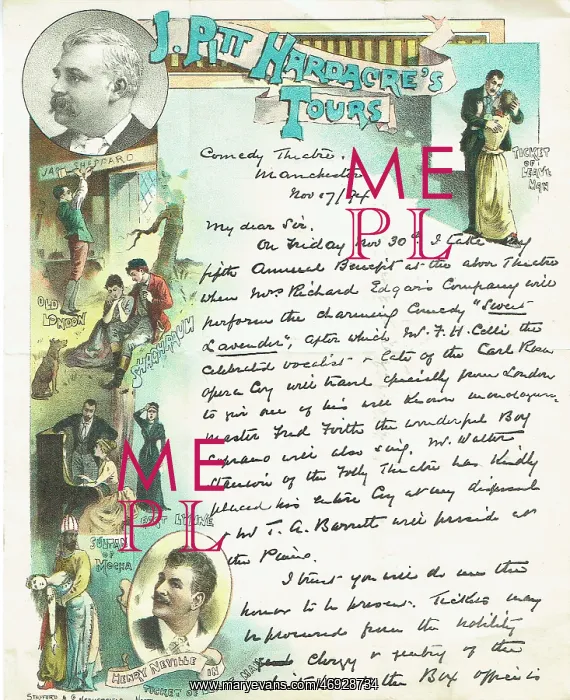 J. PITT HARDACRE'S
TOURS
JACK SHEPPARD
TICKET
OF
LEAVE
MAN
OLD
LONDON
STACHAUM
EAST LYNNE
SULTAN
OF
MOCHA
HENRY NEVILLE IN
TICKET OF
MAN
Comedy Theatre.
Manchester
Nov 27/94
My dear Sir.
On Friday Nov 30th I take my
fifth Annual Benefit at the above Theatre
when Mrs Richard Edgar's Company will
perform the charming Comedy "Sweet
Lavender", after which Mr. F. H. Celli the
Celebrated vocalist & late of the Carl Rosa
Opera Coy will travel specially from London
to give one of his well known monologues,
Master Fred Forth the wonderful Boy
Soprano will also sing. Mr. Walter
of the Folly Theatre has kindly
placed his entire Coy at my disposal
& Mr T. A. Barrett will preside at
the Piano.
I trust you will do me the
honor to be present. Tickets may
be procured from the nobility
clergy & gentry of the
the Box office is
ME
PL
ME
PL
www.maryevans.com/46928734